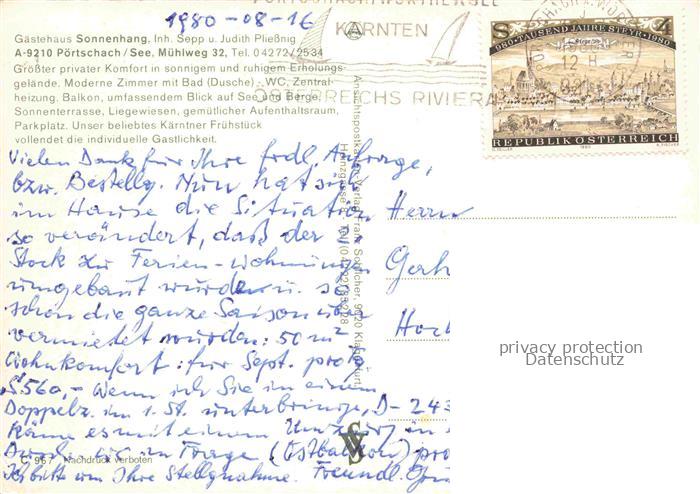 1980-08-16
PÖRTSCHACH AM WÖRTHERSEE
KÄRNTEN
ÖSTERREICHS RIVIERA
Gästehaus Sonnenhang, Inh. Sepp u. Judith Pließnig
A-9210 Pörtschach/See, Mühlweg 32, Tel. 04272/2534
Größter privater Komfort in sonnigem und ruhigem Erholungs-
gelände. Moderne Zimmer mit Bad (Dusche) - WC, Zentral-
heizung, Balkon, umfassendem Blick auf See und Berge,
Sonnenterrasse, Liegewiesen, gemütlicher Aufenthaltsraum,
Parkplatz. Unser beliebtes Kärntner Frühstück
vollendet die individuelle Gastlichkeit.
S 4
980-TAUSEND JAHRE STEYR-1980
REPUBLIK ÖSTERREICH
1980
Vielen Dank für Ihre frdl. Anfrage,
bzw. Bestellg. Nun hat sich
im Hause die Situation
so verändert, daß der
Stock zu Ferien-Wohnungen
umgebaut wurde u. so
schon die ganze Saison über
vermietet wurden: 50 m²
Wohnkomfort: für Sept. pro
S 560,- Wenn ich Sie in einem
Doppelz. im 1. St. unterbringe,
käme es mit einem Umzug in
Dusch-WC in Frage (Ostbalkon) pro
Ich bitte um Ihre Stellgnahme. Freundl.
Herrn
Gerh
Hoch
D-243
Ansichtskartenverlag Franz Schilcher, 9020 Klagenfurt,
C 967 Nachdruck verboten
privacy protection
Datenschutz